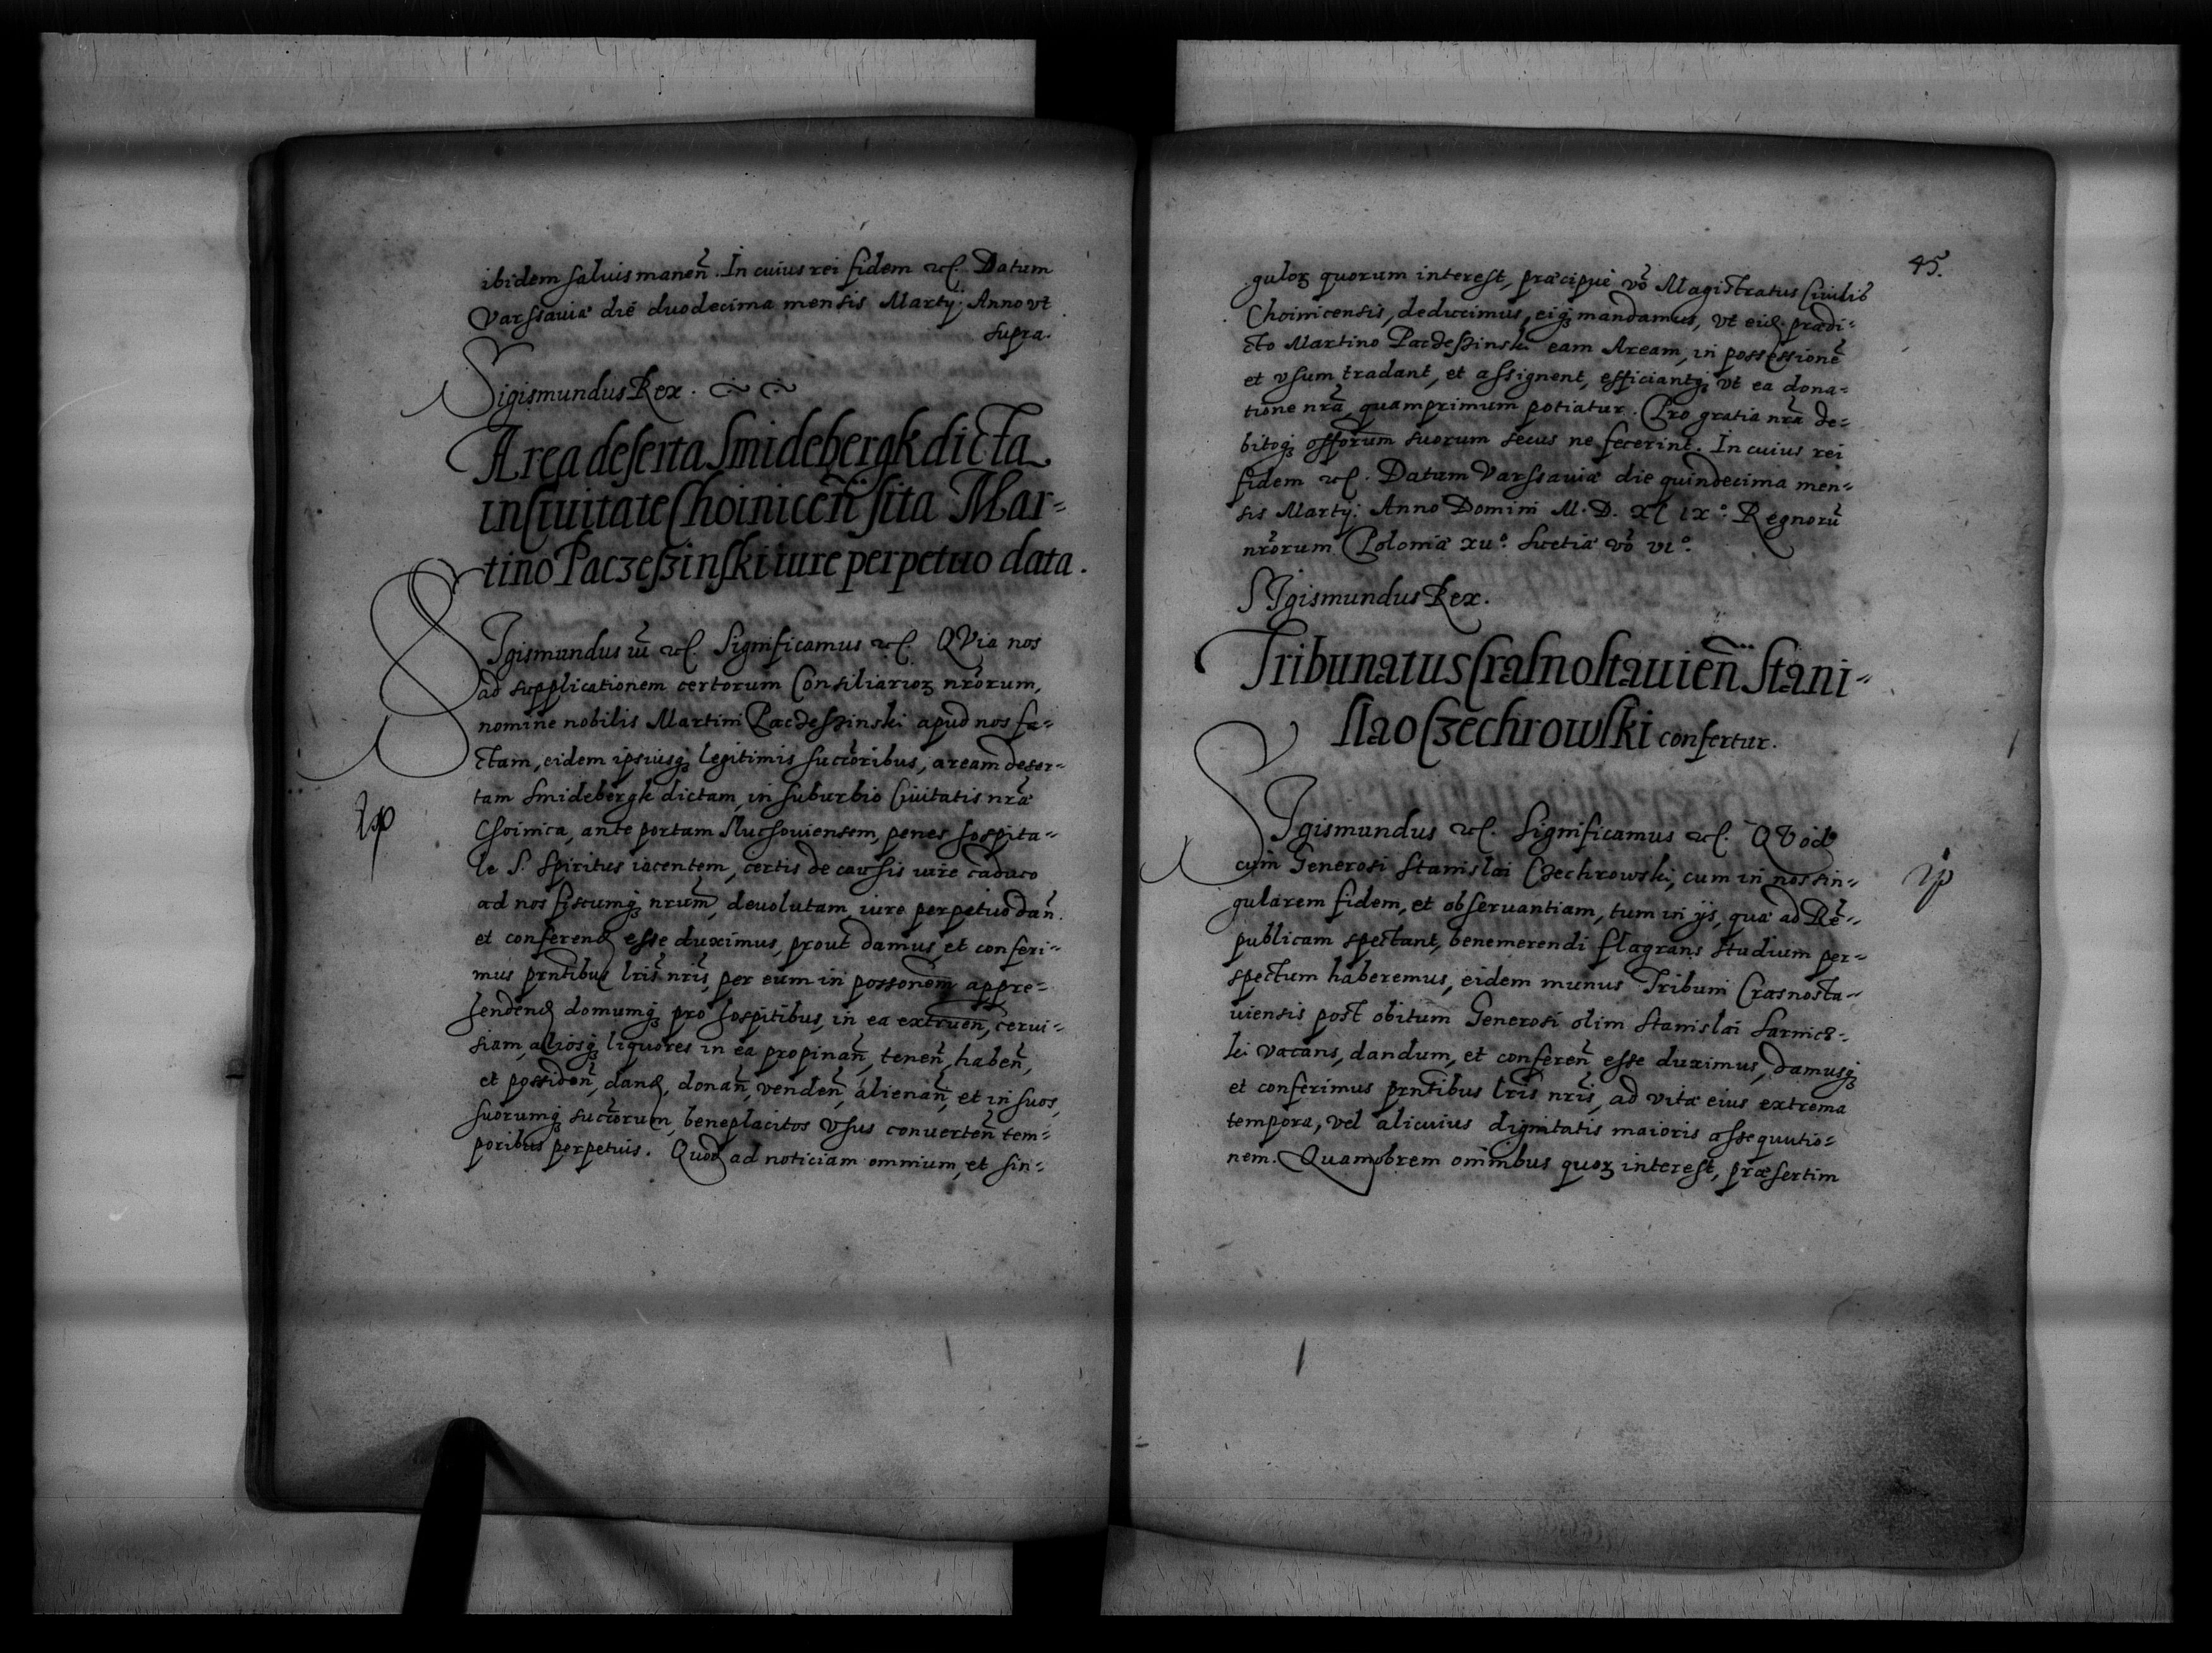 ibidem saluis manen̄. In cuius rei fidem etc. Datum
Varssauiæ die duodecima mensis Martij. Anno vt
supra.
Sigismundus Rex.
Area deserta Smidebergk dicta
in Ciuitate Choinicen̄ sita Mar-
tino Paczeszinski iure perpetuo data.
SIgismundus iii etc. Significamus etc. QVia nos
ad supplicationem certorum Consiliarioꝝ nr̄orum,
nomine nobilis Martini Paczeszinski apud nos fa-
ctam, eidem ipsiusqꝫ legitimis succ̄oribus, aream deser-
tam Smidebergk dictam, in suburbio Ciuitatis nr̄æ
Choinica, ante portam Sluchouiensem, penes hospita-
le S. Spiritus iacentem, certis de caussis iure caduco
ad nos fiscumqꝫ nr̄um, deuolutam, iure perpetuo dan̄.
et conferend̄ esse duximus, prout damus, et conferi-
mus pr̄ntibus lr̄is nr̄is, per eum in poss̄onem appre-
hendend̄ domumqꝫ pro hospitibus, in ea extruen̄, cerui-
siam, aliosqꝫ liquores in ea propinan̄, tenen̄, haben̄,
et possiden̄, dand̄, donan̄, venden̄, alienan̄, et in suos,
suorumqꝫ succ̄orum, beneplacitos vsus conuerten̄ tem-
poribus perpetuis. Quod ad noticiam omnium, et sin-
45.
guloꝝ quorum interest, præcipuè vō Magistratus Ciuilis
Choinicensis, deducimus, eiqꝫ mandamus, vt eid̄ prædi-
cto Martino Paczeszinski eam Aream, in possessionē
et vsum tradant, et assignent, efficiantqꝫ vt ea dona-
tione nr̄a, quamprimum potiatur. Pro gratia nr̄a de-
bitoqꝫ off̄orum suorum secus ne fecerint. In cuius rei
fidem etc. Datum Varssauiæ die quindecima men-
sis Martij. Anno Domini M. D. XC ix° Regnorū
nr̄orum Poloniæ xii° Suetiæ vō vi°.
SIgismundus Rex.
Tribunatus Crasnostauien̄ Stani-
slao Czechrowski confertur.
SIgismundus etc. Significamus etc. QVod
cum Generosi Stanislai Czechrowski, cum in nos sin-
gularem fidem, et obseruantiam, tum in ijs, quæ ad Rē-
publicam spectant, benemerendi flagrans studium per-
spectum haberemus, eidem munus Tribuni Crasnosta-
uiensis post obitum Generosi olim Stanislai Sarnic-
ki vacans, dandum, et conferen̄ esse duximus, damusqꝫ
et conferimus pr̄ntibus lr̄is nr̄is, ad vitæ eius extrema
tempora, vel alicuius dignitatis maioris assequutio-
nem. Quamobrem omnibus quoꝝ interest, præsertim